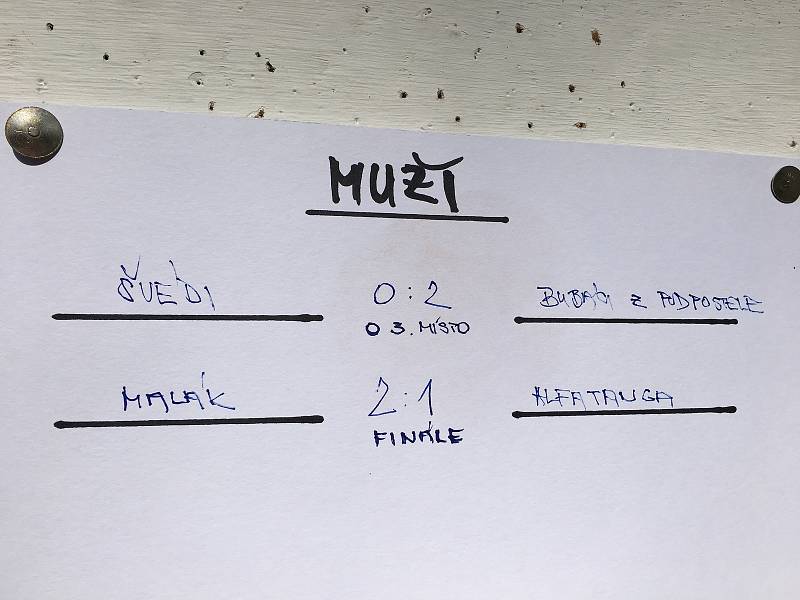 MUŽI
ŠVÉDI 0:2 BUBÁCI Z PODPOSTELE
O 3. MÍSTO
MALÁK 2:1 ALFATANGA
FINÁLE